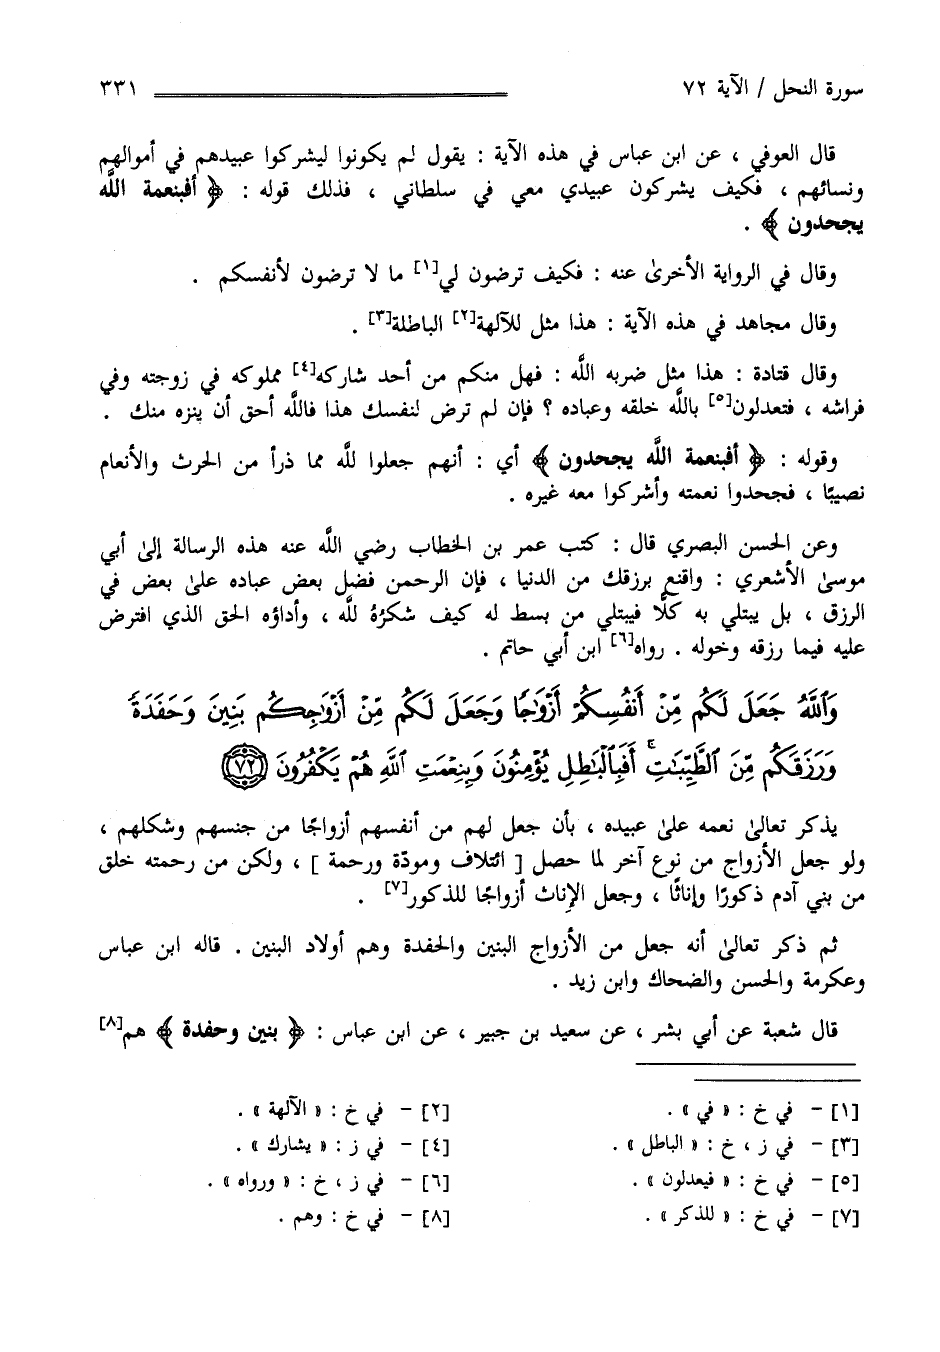 سورة النحل / الآية ٧٢ ٣٣١
قال العوفي ، عن ابن عباس في هذه الآية : يقول لم يكونوا ليشركوا عبيدهم في أموالهم
ونسائهم ، فكيف يشركون عبيدي معي في سلطاني ، فذلك قوله : ﴿ أفبنعمة اللَّه
يجحدون ﴾ .
وقال في الرواية الأخرىٰ عنه : فكيف ترضون لي[١] ما لا ترضون لأنفسكم .
وقال مجاهد في هذه الآية : هذا مثل للآلهة[٢] الباطلة[٣] .
وقال قتادة : هذا مثل ضربه اللَّه : فهل منكم من أحد شاركه[٤] مملوكه في زوجته وفي
فراشه ، فتعدلون[٥] باللَّه خلقه وعباده ؟ فإن لم ترض لنفسك هذا فاللَّه أحق أن ينزه منك .
وقوله : ﴿ أفبنعمة اللَّه يجحدون ﴾ أي : أنهم جعلوا للَّه مما ذرأ من الحرث والأنعام
نصيبًا ، فجحدوا نعمته وأشركوا معه غيره .
وعن الحسن البصري قال : كتب عمر بن الخطاب رضي اللَّه عنه هذه الرسالة إلىٰ أبي
موسىٰ الأشعري : واقنع برزقك من الدنيا ، فإن الرحمن فضل بعض عباده علىٰ بعض في
الرزق ، بل يبتلي به كلًّا فيبتلي من بسط له كيف شكرُهُ للَّه ، وأداؤه الحق الذي افترض
عليه فيما رزقه وخوله . رواه[٦] ابن أبي حاتم .
وَٱللَّهُ جَعَلَ لَكُم مِّنْ أَنفُسِكُمْ أَزْوَٰجًا وَجَعَلَ لَكُم مِّنْ أَزْوَٰجِكُم بَنِينَ وَحَفَدَةً
وَرَزَقَكُم مِّنَ ٱلطَّيِّبَٰتِ ۚ أَفَبِٱلْبَٰطِلِ يُؤْمِنُونَ وَبِنِعْمَتِ ٱللَّهِ هُمْ يَكْفُرُونَ ﴿٧٢﴾
يذكر تعالىٰ نعمه علىٰ عبيده ، بأن جعل لهم من أنفسهم أزواجًا من جنسهم وشكلهم ،
ولو جعل الأزواج من نوع آخر لما حصل [ ائتلاف ومودّة ورحمة ] ، ولكن من رحمته خلق
من بني آدم ذكورًا وإناثًا ، وجعل الإناث أزواجًا للذكور[٧] .
ثم ذكر تعالىٰ أنه جعل من الأزواج البنين والحفدة وهم أولاد البنين . قاله ابن عباس
وعكرمة والحسن والضحاك وابن زيد .
قال شعبة عن أبي بشر ، عن سعيد بن جبير ، عن ابن عباس : ﴿ بنين وحفدة ﴾ هم[٨]
[١] - في خ : « في » . [٢] - في خ : « الآلهة » .
[٣] - في ز ، خ : « الباطل » . [٤] - في ز : « يشارك » .
[٥] - في خ : « فيعدلون » . [٦] - في ز ، خ : « ورواه » .
[٧] - في خ : « للذكر » . [٨] - في خ : وهم .